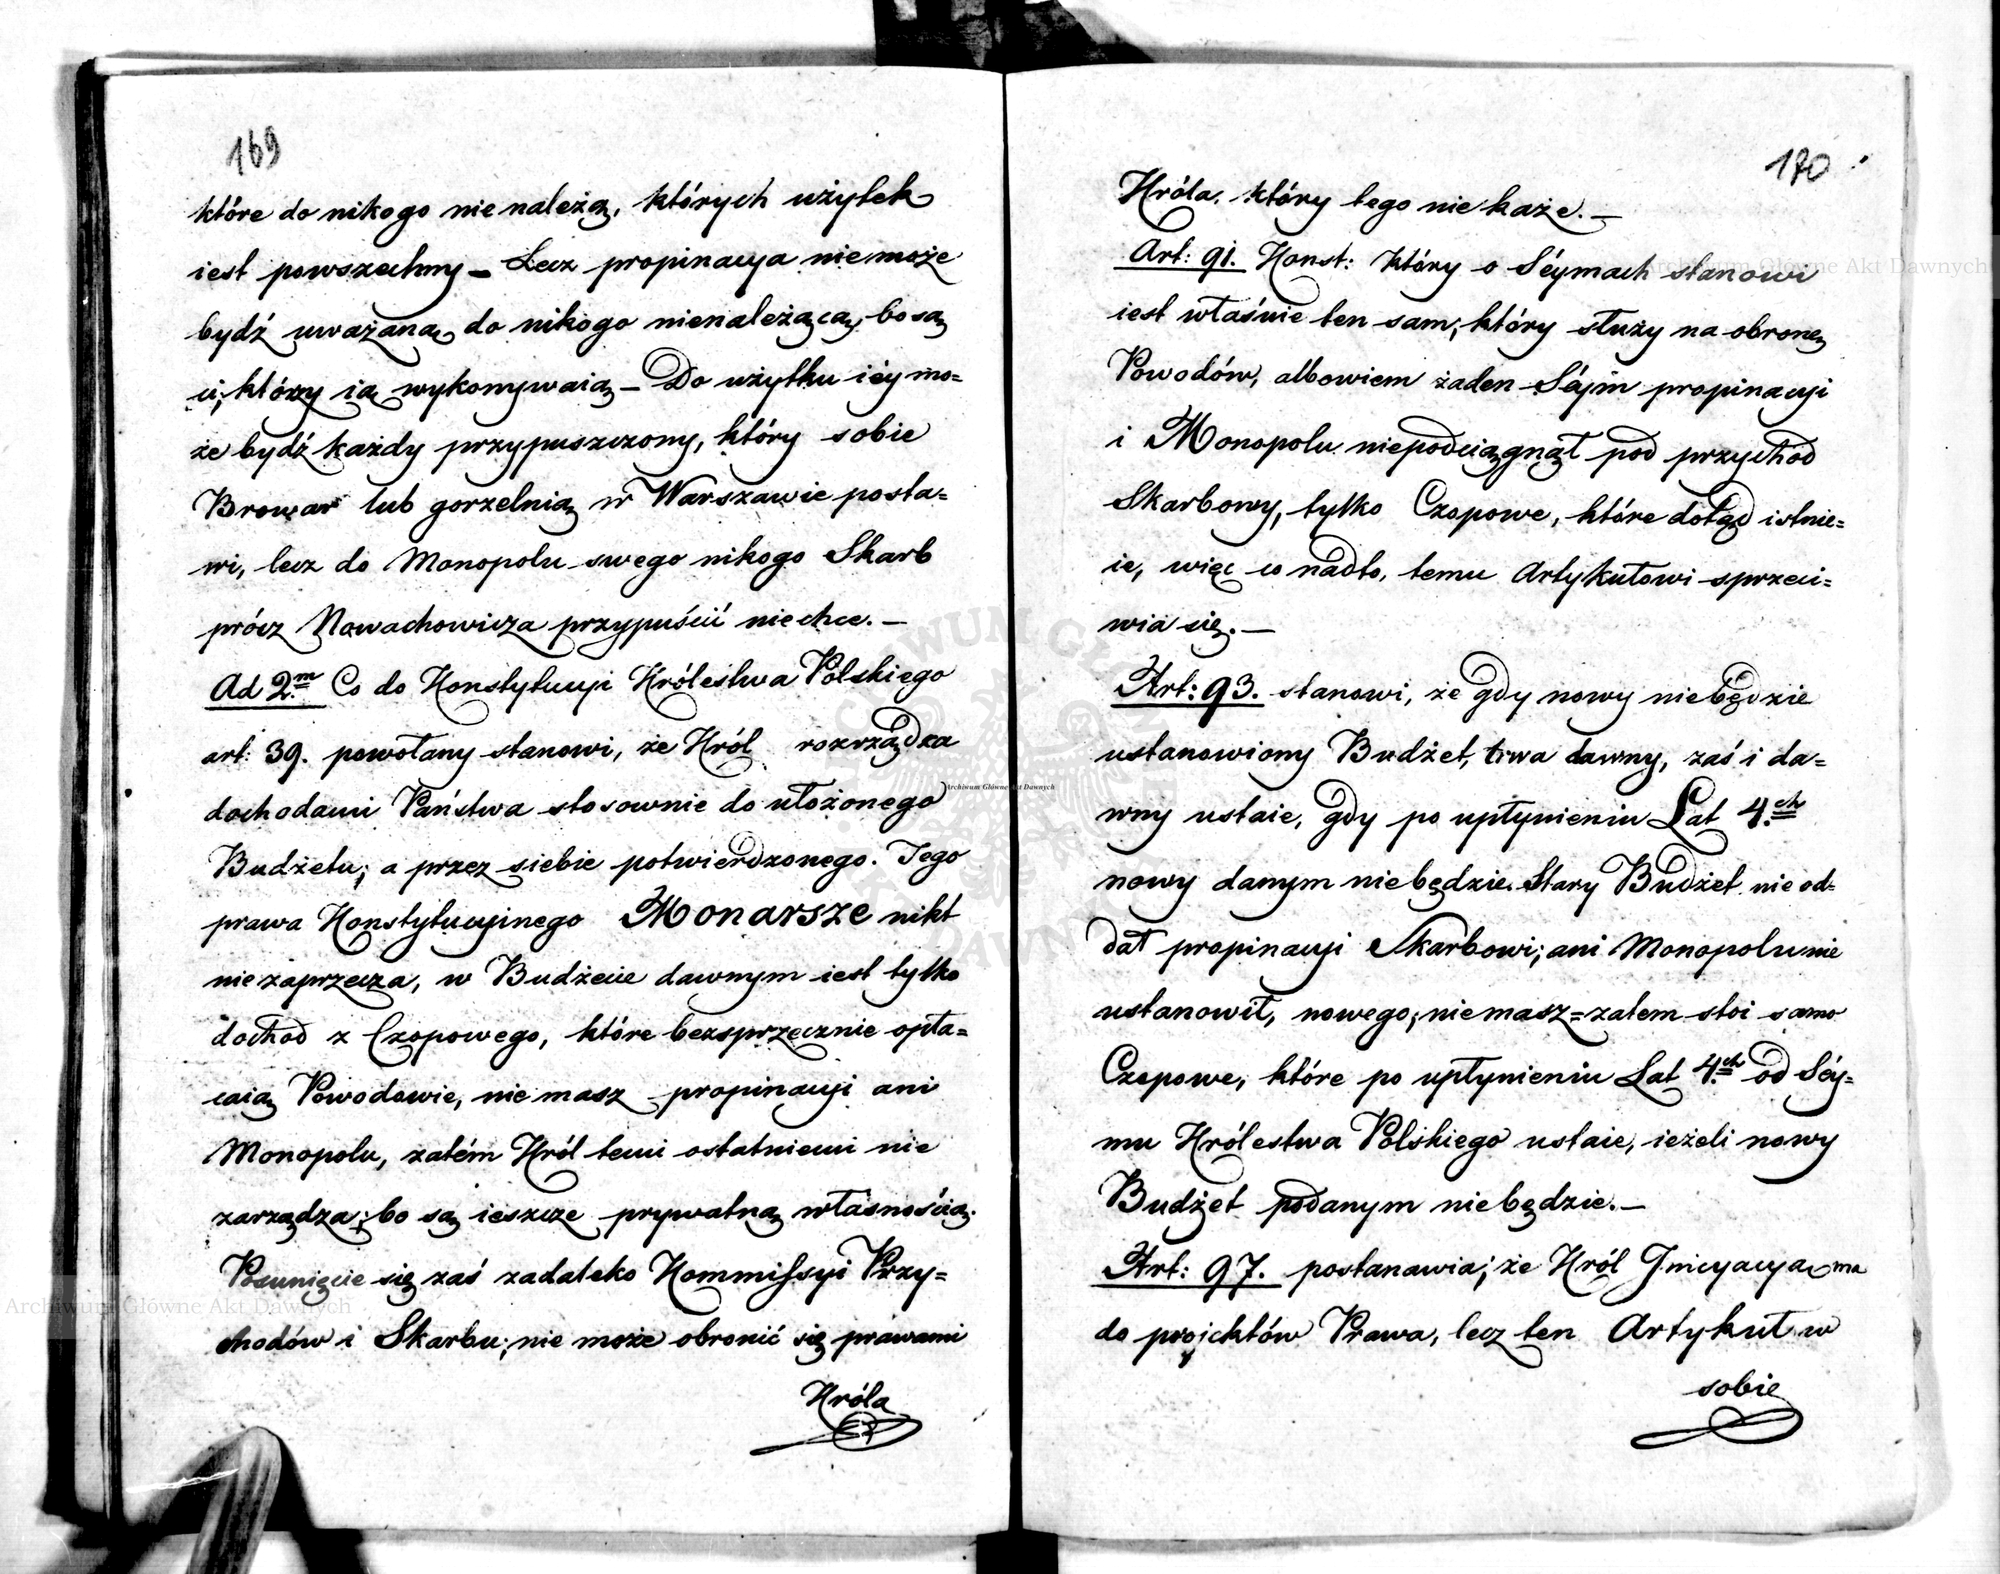 169
które do nikogo nie należą, których użytek
iest powszechny – Lecz propinacya nie może
bydź uważaną do nikogo nienależącą, bo są
ci, którzy ią wykonywaią – Do użytku iéy mo=
że bydź każdy przypuszczony, który sobie
Browar lub gorzelnią w Warszawie posta=
wi, lecz do Monopolu swego nikogo Skarb
prócz Nowachowicza przypuścić nie chce. –
Ad 2.m Co do Konstytucyi Królestwa Polskiego
art: 39. powołany stanowi, że Król rozrządza
dochodami Państwa stosownie do ułożonego
Budżetu, a przez siebie potwierdzonego. Tego
prawa Konstytucyinego Monarsze nikt
nie zaprzecza, w Budżecie dawnym iest tylko
dochod z Czopowego, które bezsprzecznie opła=
caią Powodowie, nie masz propinacyi ani
Monopolu, zatém Król temi ostatniemi nie
zarządza; bo są ieszcze prywatną własnością.
Posunięcie się zaś zadaleko Kommissyi Przy=
chodów i Skarbu, nie może obronić się prawami
Króla
170
Króla, który tego nie każe. –
Art: 91. Konst: który o Séymach stanowi
iest właśnie ten sam, który służy na obronę
Powodów, albowiem żaden Séjm propinacyi
i Monopolu niepodciągnął pod przychod
Skarbowy, tylko Czopowe, które dotąd istnie=
ie, więc co nadto, temu Artykułowi sprzeci=
wia się. –
Art: 93. stanowi, że gdy nowy niebędzie
ustanowiony Budżet, trwa dawny, zaś i da=
wny ustaie, gdy po upłynieniu Lat 4.ch
nowy danym niebędzie. Stary Budżet nie od=
dał propinacyi Skarbowi; ani Monopolu nie
ustanowił, nowego niemasz = zatem stoi samo
Czopowe, które po upłynieniu Lat 4.ch od Séy=
mu Królestwa Polskiego ustaie, ieżeli nowy
Budżet podanym niebędzie. –
Art: 97. postanawia, że Król Jnicyacyą ma
do projektów Prawa, lecz ten Artykuł w
sobie
Archiwum Główne Akt Dawnych
Archiwum Główne Akt Dawnych
Archiwum Główne Akt Dawnych